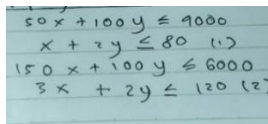 50x + 100y ≤ 9000
x + 2y ≤ 80 (1)
150x + 100y ≤ 6000
3x + 2y ≤ 120 (2)